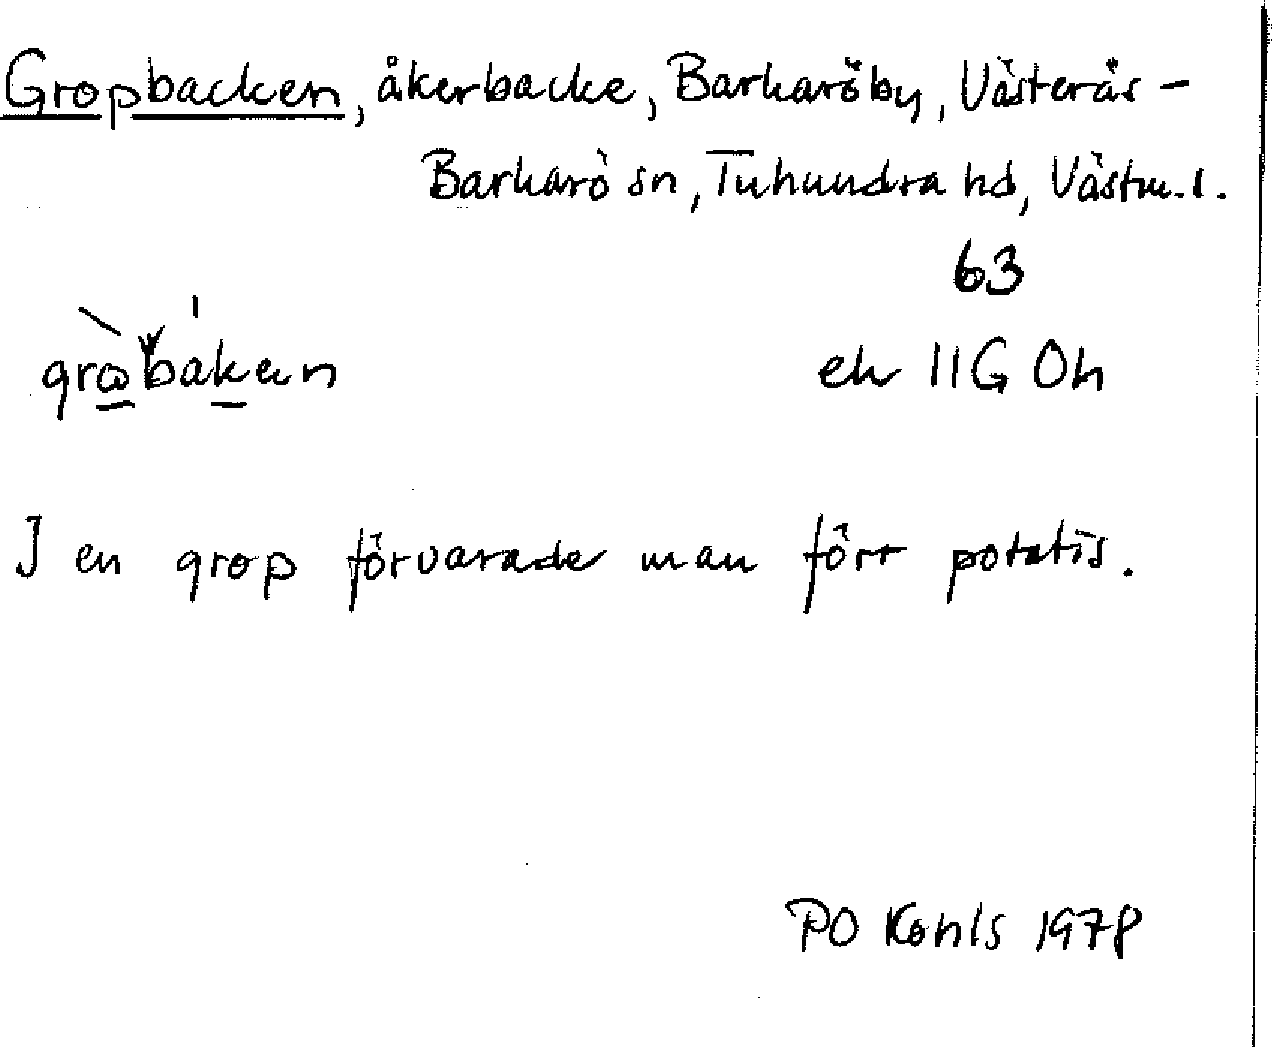 Gropbacken, åkerbacke, Barkaröby, Västerås-
Barkarö sn, Tuhundra hd, Västm.l.
63
ek 11G 0h
I en grop förvarade man förr potatis.
PO Kohls 1978